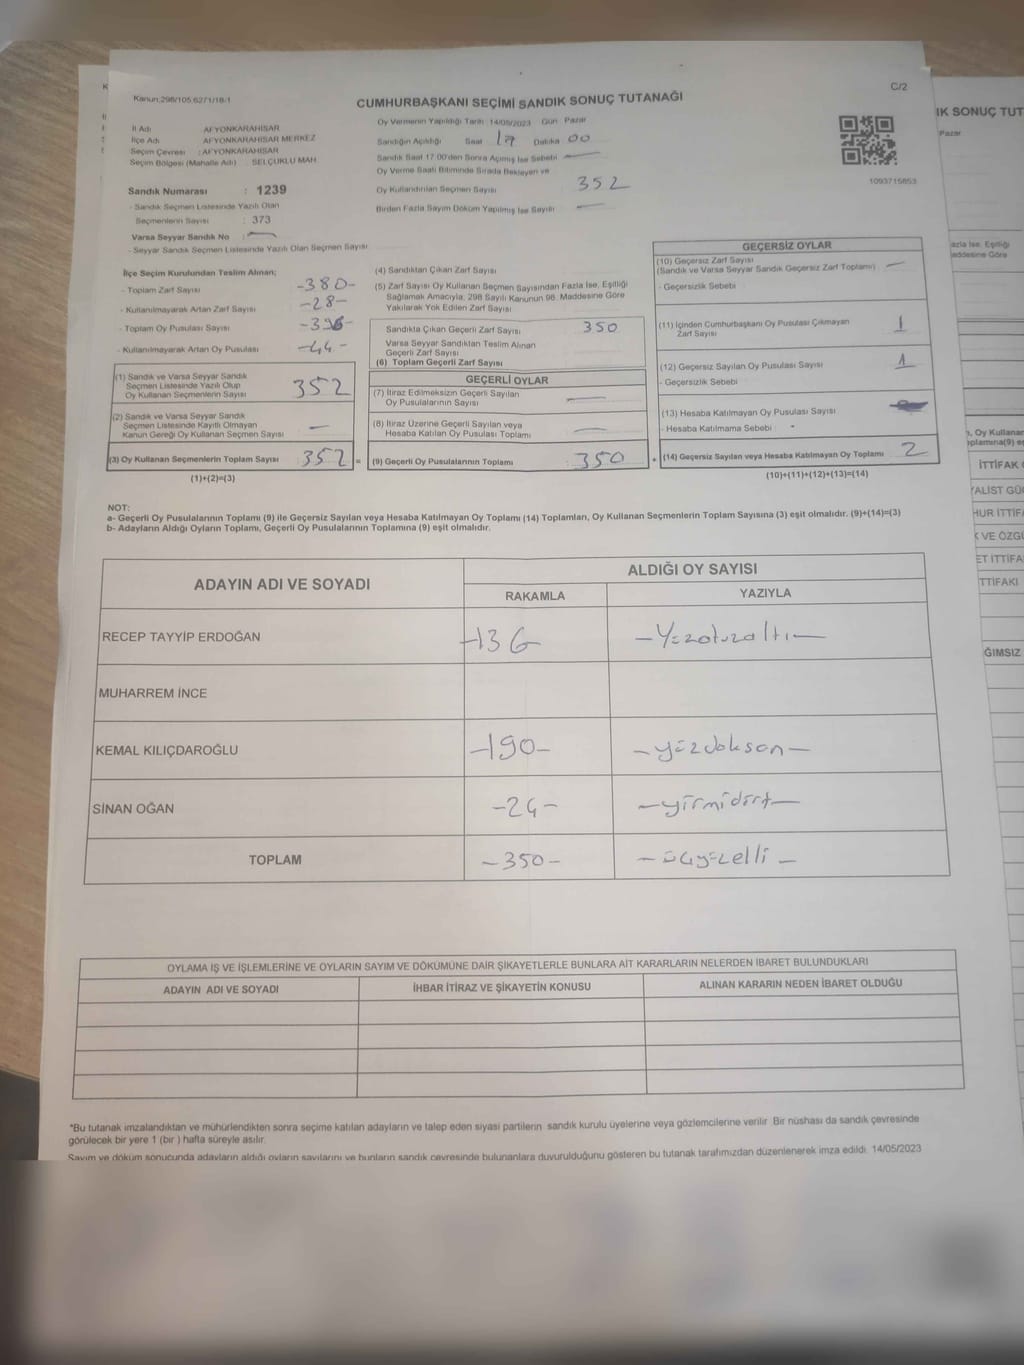 C/2
Kanun:298/105 6271/18-1
CUMHURBAŞKANI SEÇİMİ SANDIK SONUÇ TUTANAĞI
İl Adı : AFYONKARAHİSAR
İlçe Adı : AFYONKARAHİSAR MERKEZ
Seçim Çevresi : AFYONKARAHİSAR
Seçim Bölgesi (Mahalle Adı) : SELÇUKLU MAH.
Sandık Numarası : 1239
- Sandık Seçmen Listesinde Yazılı Olan
Seçmenlerin Sayısı : 373
Varsa Seyyar Sandık No : —
- Seyyar Sandık Seçmen Listesinde Yazılı Olan Seçmen Sayısı
Oy Vermenin Yapıldığı Tarih: 14/05/2023 Gün: Pazar
Sandığın Açıldığı Saat 17 Dakika 00
Sandık Saat 17.00'den Sonra Açılmış İse Sebebi —
Oy Verme Saati Bitiminde Sırada Bekleyen ve
Oy Kullandırılan Seçmen Sayısı 352
Birden Fazla Sayım Döküm Yapılmış İse Sayısı —
1093715853
İlçe Seçim Kurulundan Teslim Alınan;
- Toplam Zarf Sayısı -380-
- Kullanılmayarak Artan Zarf Sayısı -28-
- Toplam Oy Pusulası Sayısı -396-
- Kullanılmayarak Artan Oy Pusulası -44-
(1) Sandık ve Varsa Seyyar Sandık
Seçmen Listesinde Yazılı Olup
Oy Kullanan Seçmenlerin Sayısı 352
(2) Sandık ve Varsa Seyyar Sandık
Seçmen Listesinde Kayıtlı Olmayan
Kanun Gereği Oy Kullanan Seçmen Sayısı —
(3) Oy Kullanan Seçmenlerin Toplam Sayısı 352 =
(1)+(2)=(3)
(4) Sandıktan Çıkan Zarf Sayısı
(5) Zarf Sayısı Oy Kullanan Seçmen Sayısından Fazla İse, Eşitliği
Sağlamak Amacıyla, 298 Sayılı Kanunun 98. Maddesine Göre
Yakılarak Yok Edilen Zarf Sayısı
Sandıkta Çıkan Geçerli Zarf Sayısı 350
Varsa Seyyar Sandıktan Teslim Alınan
Geçerli Zarf Sayısı
(6) Toplam Geçerli Zarf Sayısı
GEÇERLİ OYLAR
(7) İtiraz Edilmeksizin Geçerli Sayılan
Oy Pusulalarının Sayısı —
(8) İtiraz Üzerine Geçerli Sayılan veya
Hesaba Katılan Oy Pusulası Toplamı —
(9) Geçerli Oy Pusulalarının Toplamı : 350 +
GEÇERSİZ OYLAR
(10) Geçersiz Zarf Sayısı
(Sandık ve Varsa Seyyar Sandık Geçersiz Zarf Toplamı) —
- Geçersizlik Sebebi
(11) İçinden Cumhurbaşkanı Oy Pusulası Çıkmayan
Zarf Sayısı 1
(12) Geçersiz Sayılan Oy Pusulası Sayısı 1
- Geçersizlik Sebebi
(13) Hesaba Katılmayan Oy Pusulası Sayısı
- Hesaba Katılmama Sebebi -
(14) Geçersiz Sayılan veya Hesaba Katılmayan Oy Toplamı 2
(10)+(11)+(12)+(13)=(14)
NOT:
a- Geçerli Oy Pusulalarının Toplamı (9) ile Geçersiz Sayılan veya Hesaba Katılmayan Oy Toplamı (14) Toplamları, Oy Kullanan Seçmenlerin Toplam Sayısına (3) eşit olmalıdır. (9)+(14)=(3)
b- Adayların Aldığı Oyların Toplamı, Geçerli Oy Pusulalarının Toplamına (9) eşit olmalıdır.
ADAYIN ADI VE SOYADI
ALDIĞI OY SAYISI
RAKAMLA YAZIYLA
RECEP TAYYİP ERDOĞAN -136 -Yüzotuzaltı-
MUHARREM İNCE
KEMAL KILIÇDAROĞLU -190- -yüzdoksan-
SİNAN OĞAN -24- -yirmidört-
TOPLAM -350- -üçyüzelli-
OYLAMA İŞ VE İŞLEMLERİNE VE OYLARIN SAYIM VE DÖKÜMÜNE DAİR ŞİKAYETLERLE BUNLARA AİT KARARLARIN NELERDEN İBARET BULUNDUKLARI
ADAYIN ADI VE SOYADI İHBAR İTİRAZ VE ŞİKAYETİN KONUSU ALINAN KARARIN NEDEN İBARET OLDUĞU
*Bu tutanak imzalandıktan ve mühürlendikten sonra seçime katılan adayların ve talep eden siyasi partilerin sandık kurulu üyelerine veya gözlemcilerine verilir. Bir nüshası da sandık çevresinde
görülecek bir yere 1 (bir ) hafta süreyle asılır.
Sayım ve döküm sonucunda adayların aldığı oyların sayılarını ve bunların sandık çevresinde bulunanlara duyurulduğunu gösteren bu tutanak tarafımızdan düzenlenerek imza edildi. 14/05/2023
IK SONUÇ TUT
Pazar
azla İse, Eşitliği
addesine Göre
, Oy Kullanan
oplamına(9) eş
İTTİFAK
YALİST GÜÇ
HUR İTTİFA
VE ÖZGÜ
ET İTTİFA
TTİFAKI
ĞIMSIZ